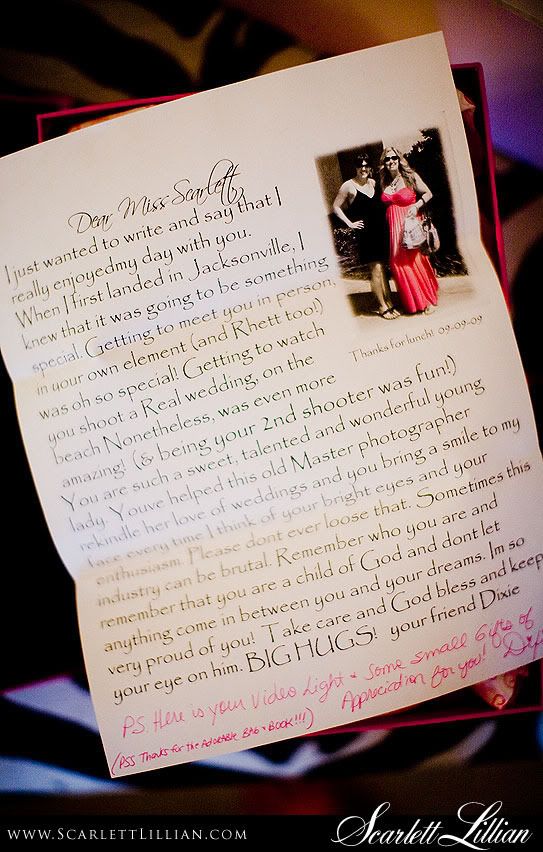 Dear Miss Scarlett,
I just wanted to write and say that I
really enjoyedmy day with you.
When I first landed in Jacksonville, I
knew that it was going to be something
special. Getting to meet you in person,
in your own element (and Rhett too!)
was oh so special! Getting to watch
you shoot a Real wedding, on the
beach Nonetheless, was even more
amazing! (& being your 2nd shooter was fun!)
You are such a sweet, talented and wonderful young
lady. Youve helped this old Master photographer
rekindle her love of weddings and you bring a smile to my
face every time I think of your bright eyes and your
enthusiasm. Please dont ever loose that. Sometimes this
industry can be brutal. Remember who you are and
remember that you are a child of God and dont let
anything come in between you and your dreams. Im so
very proud of you! Take care and God bless and keep
your eye on him. BIG HUGS! your friend Dixie
Thanks for lunch! 09-09-09
PS. Here is your Video Light & Some small Gifts of
Appreciation for you!
(PSS Thanks for the Adorable BAG & BOOK!!!)
www.ScarlettLillian.com
Scarlett Lillian